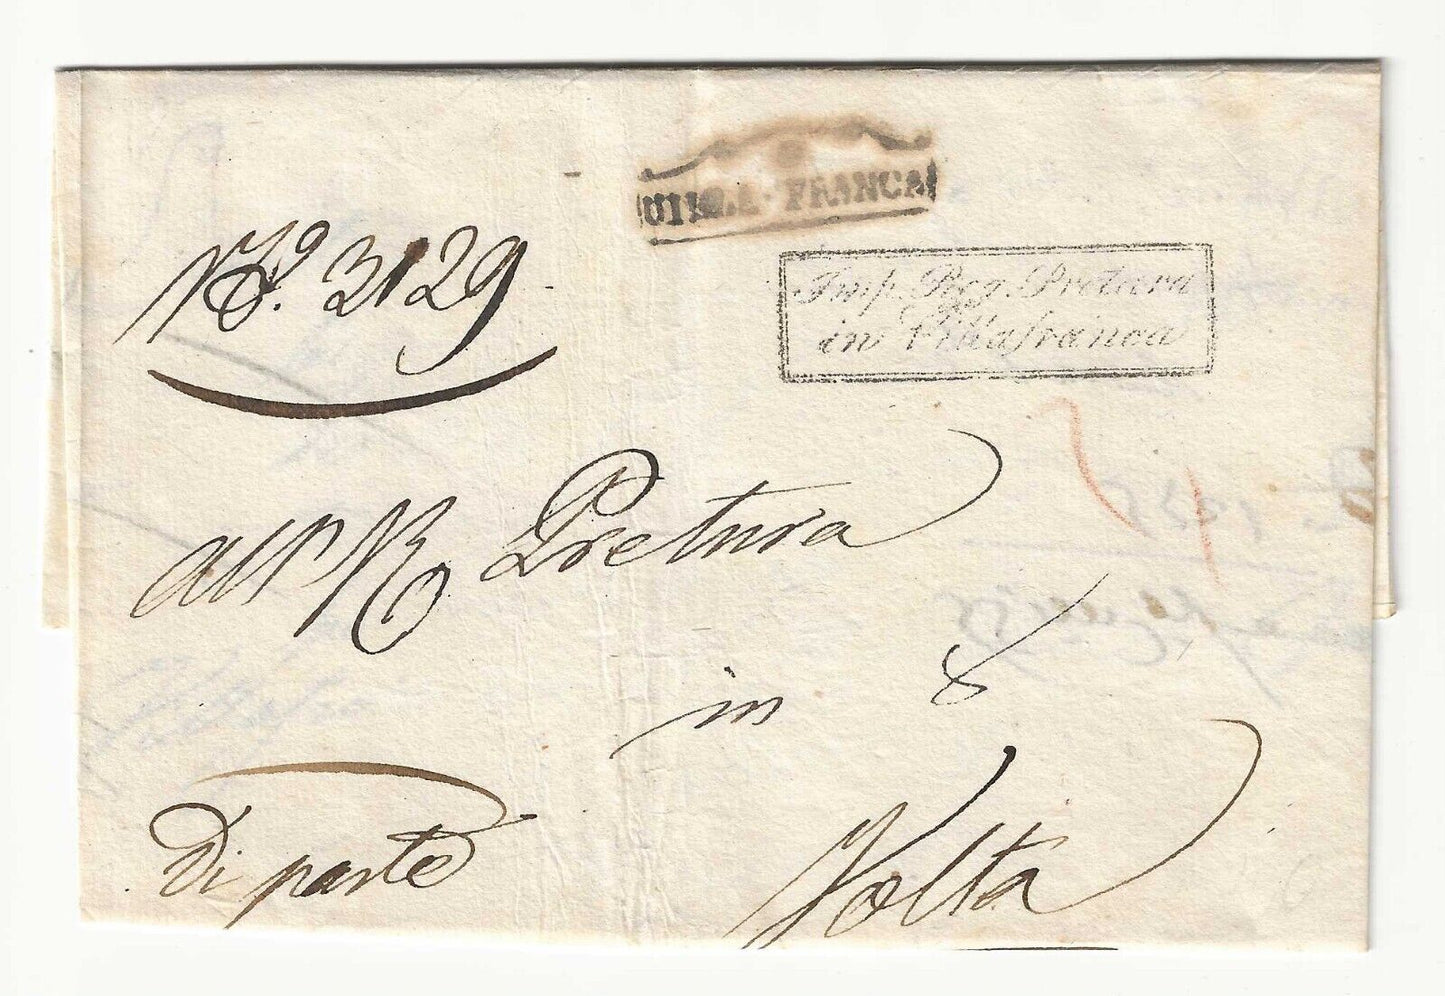 VILLA-FRANCA
No. 3129
Imp. Reg. Pretura
in Villafranca
all'I R Pretura
in
Volta
Di parte